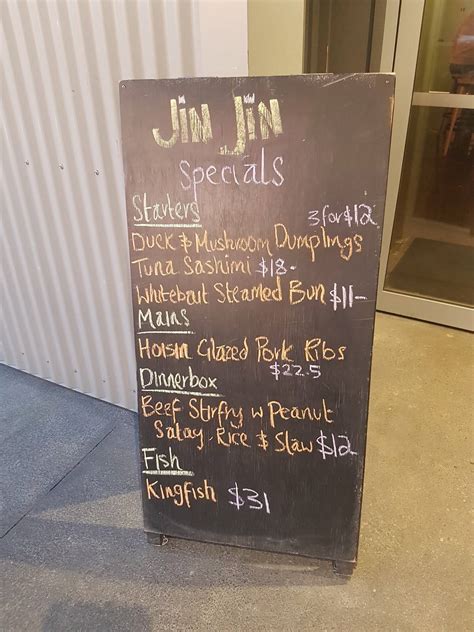 Jin Jin
Specials
Starters
3 for $12
Duck & Mushroom Dumplings
Tuna Sashimi $18-
Whitebait Steamed Bun $11-
Mains
Hoisin Glazed Pork Ribs
$22.5
Dinnerbox
Beef Stirfry w Peanut
Satay, Rice & Slaw $12
Fish
Kingfish $31